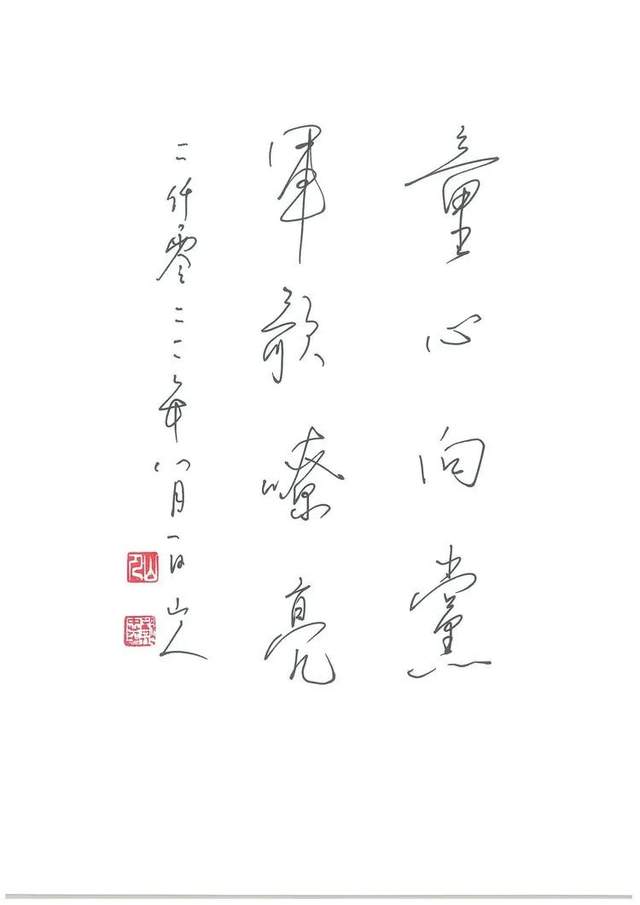 童心向黨
軍歌嘹亮
二仟零二二年八月一日山人
山人